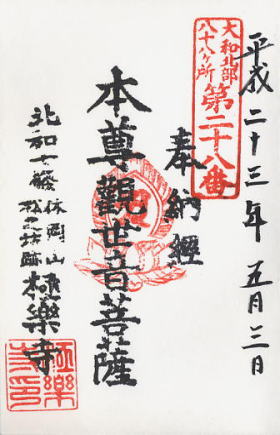 平成二十三年五月三日
大和北部
八十八ヶ所
第二十八番
奉納經
本尊觀世音菩薩
休岡山
極樂寺
極樂
寺印